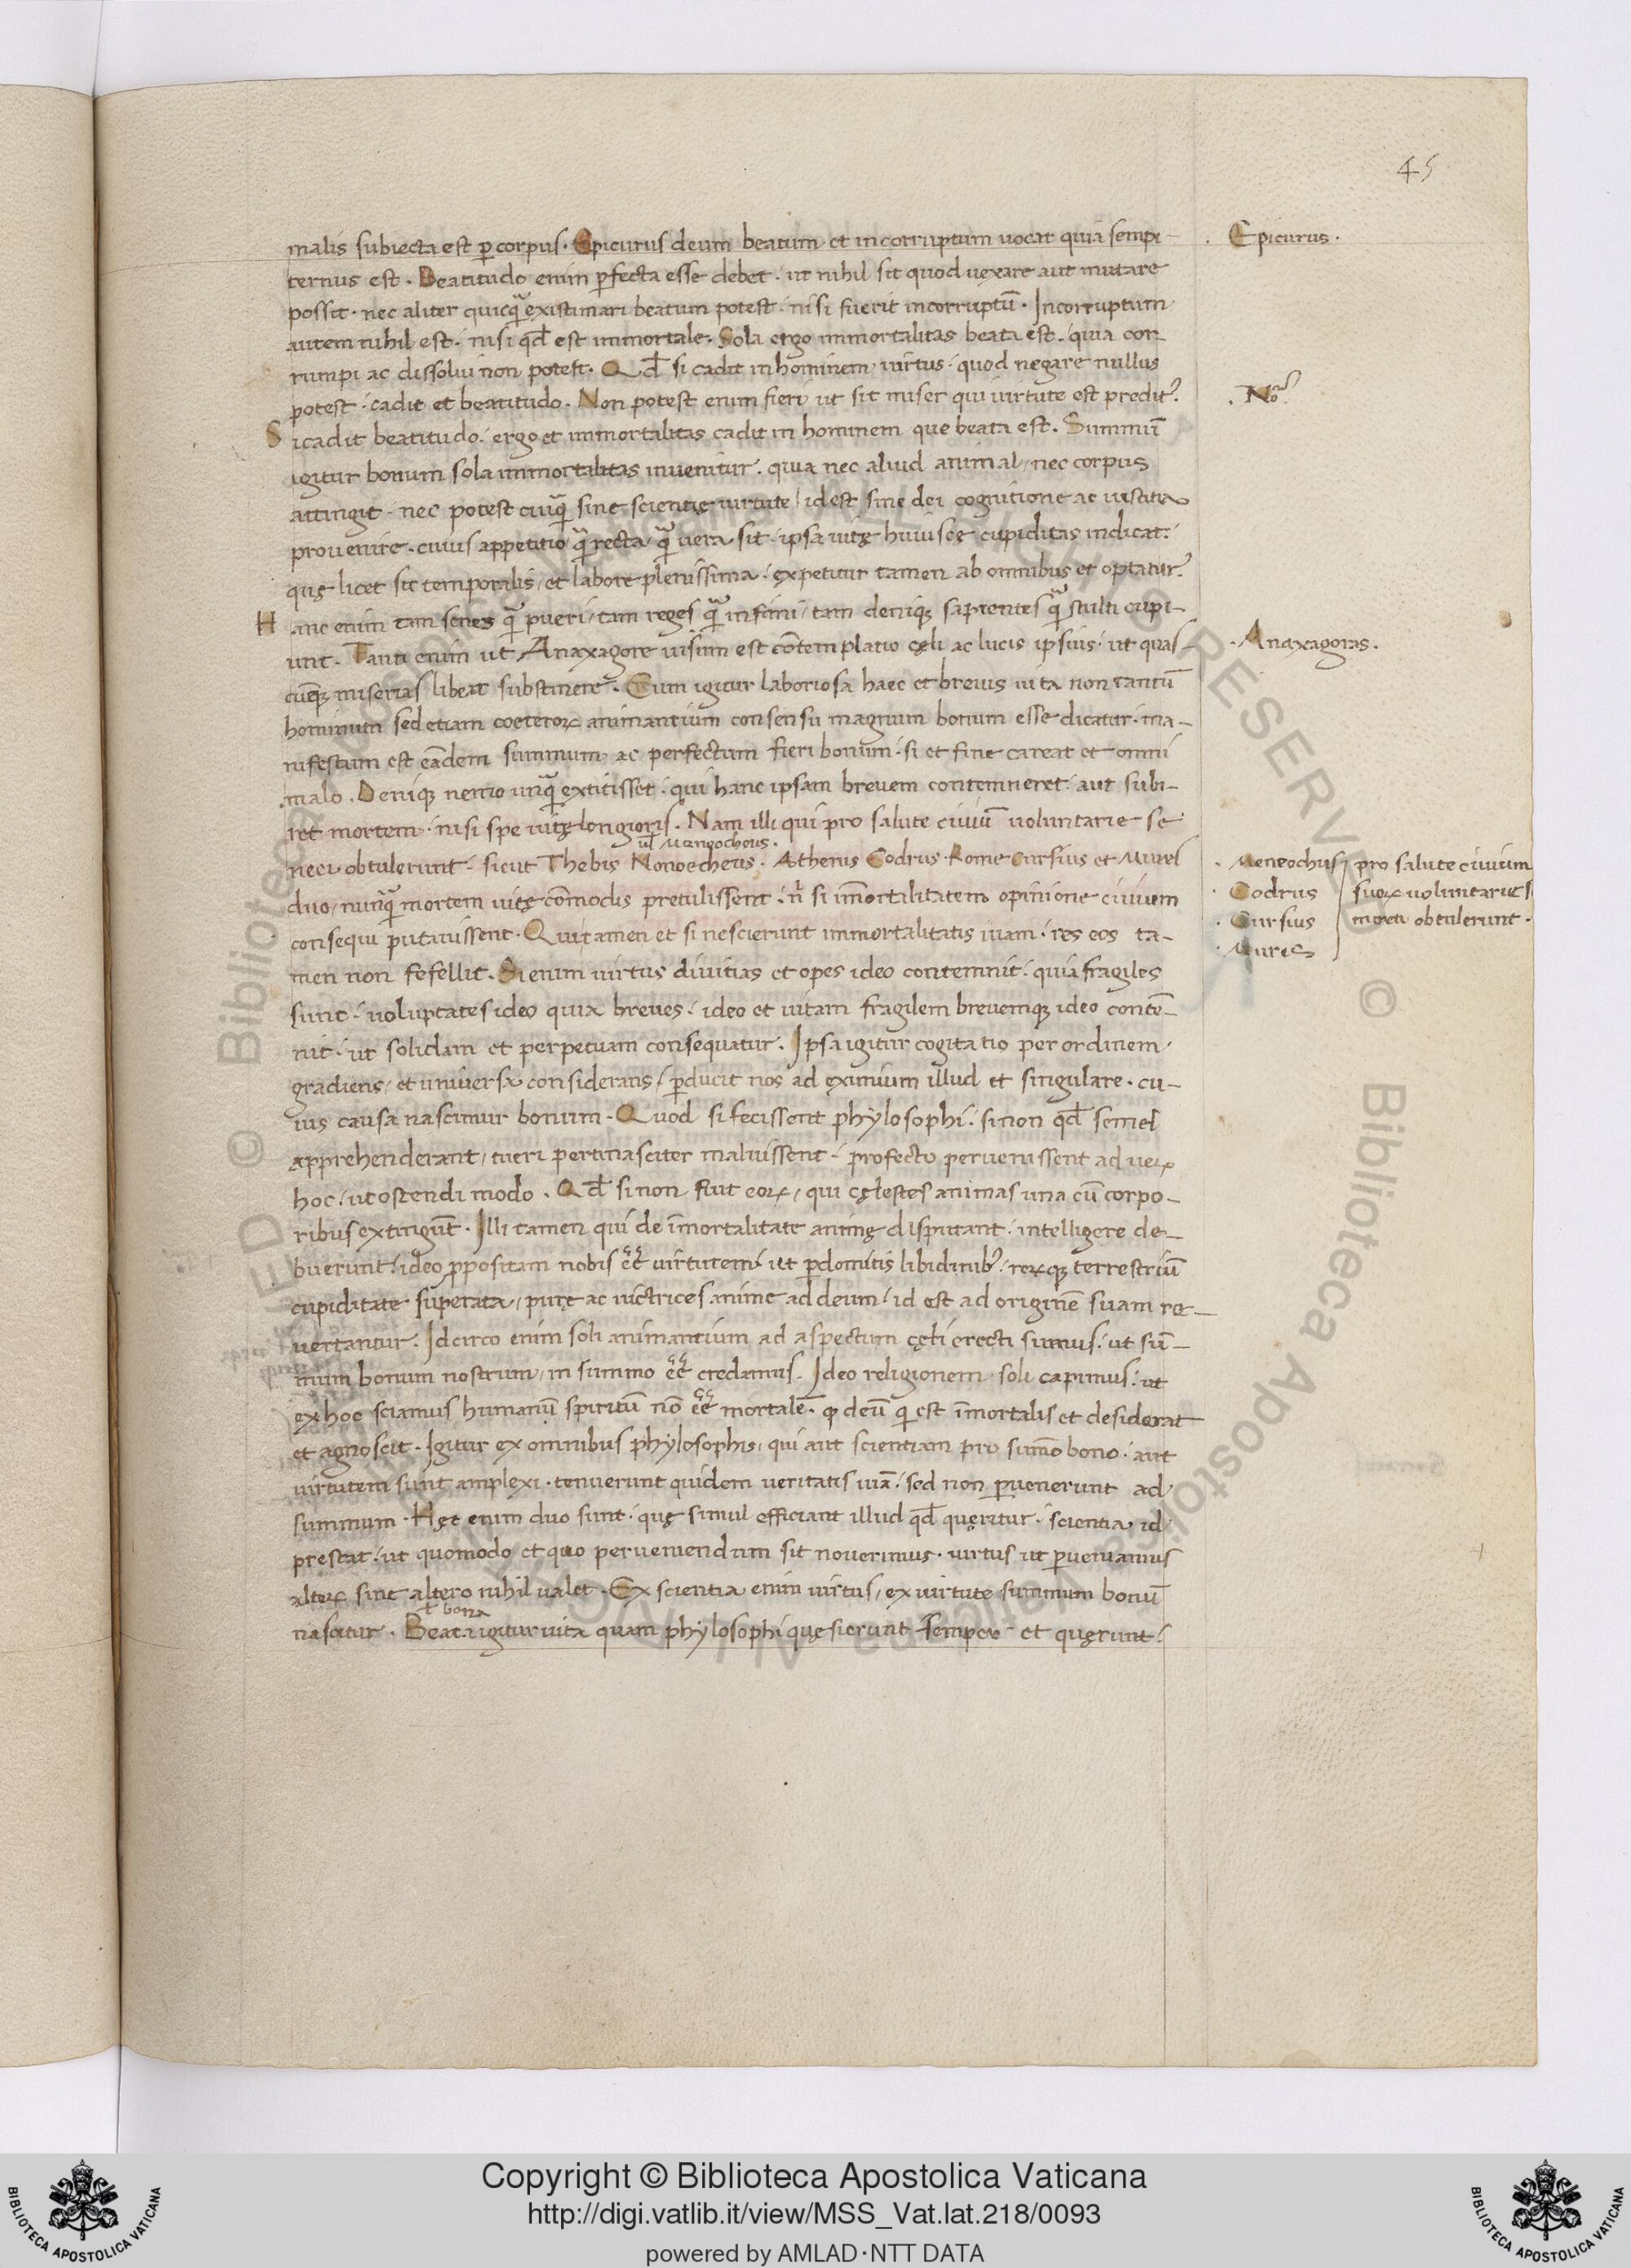 45
malis subiecta est p̲ corpus. Epicurus deum beatum et incorruptum uocat quia sempi-
ternus est. Beatitudo enim p̲fecta esse debet. ut nihil sit quod uexare aut mutare
possit. nec aliter quicq̃ existimari beatum potest. nisi fuerit incorruptũ. Incorruptum
autem nihil est. nisi qđ est immortale. Sola ergo immortalitas beata est. quia cor
rumpi ac dissolui non potest. Qđ si cadit in hominem uirtus. quod negare nullus
potest. cadit et beatitudo. Non potest enim fieri ut sit miser qui uirtute est predit᾿.
Si cadit beatitudo. ergo et immortalitas cadit in hominem que beata est. Summũ
igitur bonum sola immortalitas inuenitur. quia nec aliud animal, nec corpus
attingit. nec potest cuiq̃ sine scientię uirtute, id est sine dei cognitione ac iustitia
prouenire. cuius appetitio q̃ recta q̃ uera sit. ipsa uitę huiuscę cupiditas indicat.
quę licet sit temporalis, et labore plenissima. expetitur tamen ab omnibus et optatur.
Hanc enim tam senes q̃ pueri, tam reges q̃ infimi, tam deniq; sapientes q̃ stulti cupi-
unt. Tanti enim ut Anaxagore uisum est cõtemplatio cęli ac lucis ipsius. ut quas-
cũq; miserias libeat substinere. Cum igitur laboriosa haec et breuis uita non tantũ
hominum sed etiam coeteroꝝ animantium consensu magnum bonum esse dicatur. ma-
nifestum est eãdem summum ac perfectum fieri bonum. si et fine careat et omni
malo. Deniq; nemo unq̃ extitisset. qui hanc ipsam breuem contemneret. aut subi-
ret mortem. nisi spe uitę longioris. Nam illi qui pro salute ciuiũ uoluntarie se
uł Meneocheus.
neci obtulerunt. sicut Thebis Nonoecheus. Athenis Codrus. Rome Cursius et Murei
duo, nunq̃ mortem uitę cõmodis pretulissent. ñ si im̃ortalitatem opinione ciuium
consequi putauissent. Qui tamen et si nescierunt immortalitatis uiam. res eos ta-
men non fefellit. Si enim uirtus diuitias et opes ideo contemnit. quia fragiles
sunt. uoluptates ideo quia breues. ideo et uitam fragilem breuemq; ideo contẽ-
nit. ut solidam et perpetuam consequatur. Ipsa igitur cogitatio per ordinem
gradiens, et uniuersa considerans, p̲ducit nos ad eximium illud et singulare. cu-
ius causa nascimur bonum. Quod si fecissent phylosophi. si non qđ semel
apprehenderant, tueri pertinasciter maluissent. profecto peruenissent ad ueꝝ
hoc, ut ostendi modo. Qđ si non fuit eoꝝ, qui cęlestes animas una cũ corpo-
ribus extingũt. Illi tamen qui de ĩmortalitate animę disputant. intelligere de-
buerunt. ideo ꝓpositam nobis ẽẽ uirtutem. ut p̲domitis libidinib᾿. reꝝq; terrestriũ
cupiditate superata, purę ac uictrices anime ad deum, id est ad originẽ suam re-
uertantur. Idcirco enim soli animantium ad aspectum cęli erecti sumus. ut sũ-
mum bonum nostrum, in summo ẽẽ credamus. Ideo religionem soli capimus. ut
ex hoc sciamus humanũ spiritũ nõ ẽẽ mortalẽ. ꝙ deũ q̇ est ĩmortalis et desiderat
et agnoscit. Igitur ex omnibus phylosophis, qui aut scientiam pro sum̃o bono. aut
uirtutem sunt amplexi. tenuerunt quidem ueritatis uiã. sed non p̲uenerunt ad
summum. Hęc enim duo sunt. quę simul efficiant illud qđ quęritur. scientia id
prestat. ut quomodo et quo perueniendum sit nouerimus. uirtus ut p̲ueniamus
alteꝝ sine altero nihil ualet. Ex scientia enim uirtus, ex uirtute summum bonũ
nascitur. Beata igitur uita quam phylosophi quęsierunt semper et quęrunt.
Epicurus.
No.
Anaxagoras.
Meneochus
Codrus
Cursius
Mures
pro salute ciuium
suoꝝ uoluntarie s
morti obtulerunt.
Copyright © Biblioteca Apostolica Vaticana
http://digi.vatlib.it/view/MSS_Vat.lat.218/0093
powered by AMLAD·NTT DATA
BIBLIOTECA APOSTOLICA VATICANA
BIBLIOTECA APOSTOLICA VATICANA